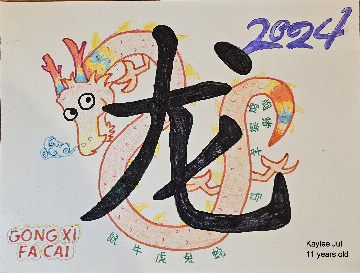 2024
龙
鼠 牛 虎 兔 蛇
羊
GONG XI
FA CAI
Kaylee Jui
11 years old